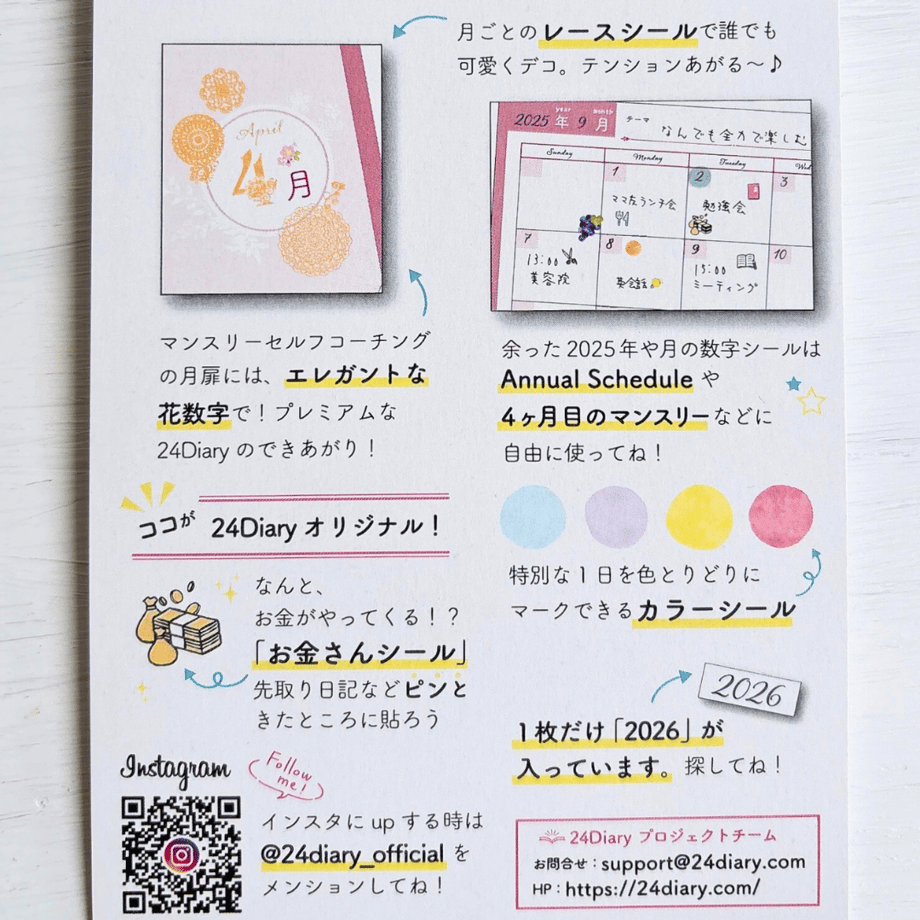 月ごとのレースシールで誰でも
可愛くデコ。テンションあがる〜♪
April
4月
year
month
2025 年 9 月
テーマ
なんでも全力で楽しむ
Sunday
Monday
Tuesday
Wed
1
2
3
ママ友ランチ会
勉強会
7
8
9
10
13:00
美容院
英会話
15:00
ミーティング
マンスリーセルフコーチング
の月扉には、エレガントな
花数字で！プレミアムな
24Diary のできあがり！
余った 2025 年や月の数字シールは
Annual Schedule や
4ヶ月目のマンスリーなどに
自由に使ってね！
ココが 24Diary オリジナル！
なんと、
お金がやってくる！？
「お金さんシール」
先取り日記などピンと
きたところに貼ろう
特別な 1 日を色とりどりに
マークできるカラーシール
2026
1枚だけ「2026」が
入っています。探してね！
Instagram
Follow
me!
インスタに up する時は
@24diary_official を
メンションしてね！
24Diary プロジェクトチーム
お問合せ：support@24diary.com
HP：https://24diary.com/